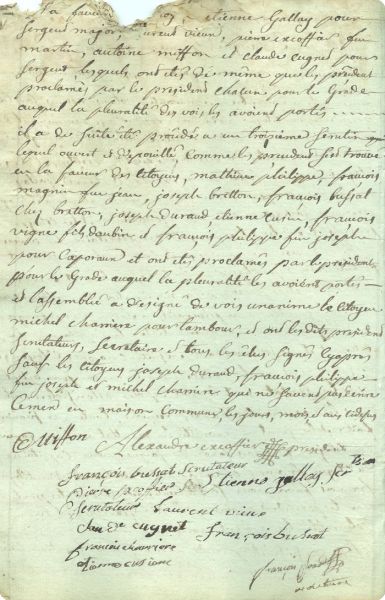 la faveur etienne Gallay pour
sergent major, Laurent vieux, pierre excoffier feu
martin, antoine miffon et claude cugnet pour
sergent, lesquels ont étés de même que les président
proclamés par le président chacun pour le Grade
auquel la pluralité des voix les avoient portés
il a de suite été procédé a un troisieme scrutin
lequel ouvert et dépouillé comme les precedent s'est trouvé
en la faveur des citoyens, mathieu philippe, françois
magnin feu jean, joseph bretton, françois bussat
chez bretton, joseph durand, etienne cusin, françois
vigne fils d'aubin et françois philippe feu joseph
pour Caporaux et ont étés proclamés par le président
pour le Grade auquel la pluralité les avoient portés
et l'assemblé a designé de voix unanime le citoyen
michel charriere pour tambour, et ont lesdits président
scrutateurs, secretaire et tous les élus signés cy après
sauf les citoyens joseph durand, françois philippe
feu joseph et michel charriere qui ne savent pas écrire
en maison Commune les jours, mois et an
Miffon Alexandre excoffier president
françois bussat scrutateur
pierre excoffier Etienne gallay
Scrutateur Laurent vieux
cugnet françois bussat
françois
etienne cusin françois
secretaire